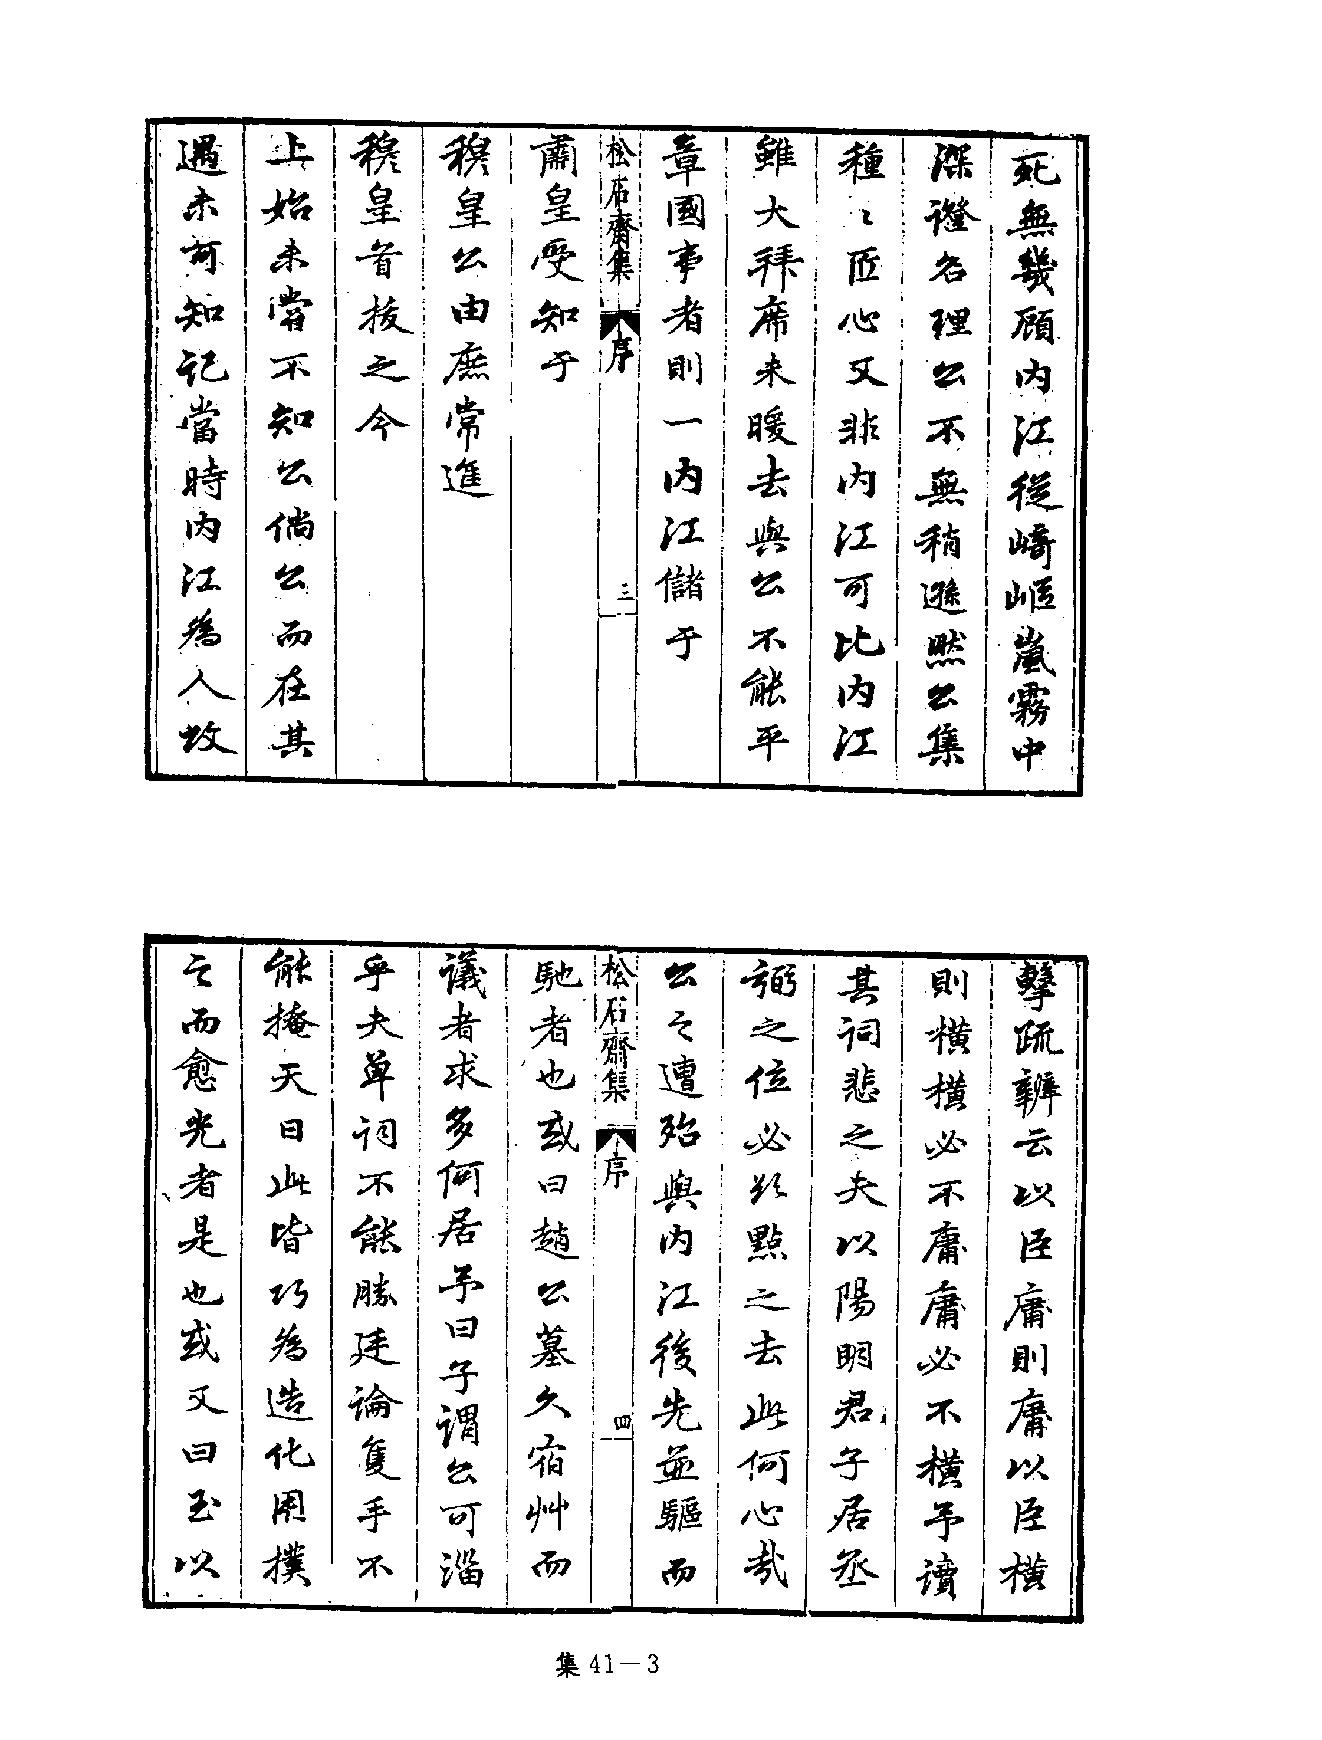 死無幾顧內江從崎嶇嵐霧中
深證名理公不無稍遜然公集
種〻匠心又非內江可比內江
雖大拜席未暖去與公不能平
章國事者則一內江儲于
松石齋集 序 三
肅皇受知于
穆皇公由庶常進
穆皇首拔之今
上始未嘗不知公倘公而在其
遇未可知記當時內江為人蚊
孽疏辨云以臣庸則庸以臣橫
則橫橫必不庸庸必不橫予讀
其詞悲之夫以陽明君子居丞
弼之位必欲點之去此何心哉
公之遭殆與內江後先並驅而
松石齋集 序 四
馳者也或曰趙公墓久宿艸而
議者求多何居予曰子謂公可淄
乎夫單詞不能勝廷論隻手不
能掩天日此皆巧為造化用撲
之而愈光者是也或又曰玉以
集 41－3